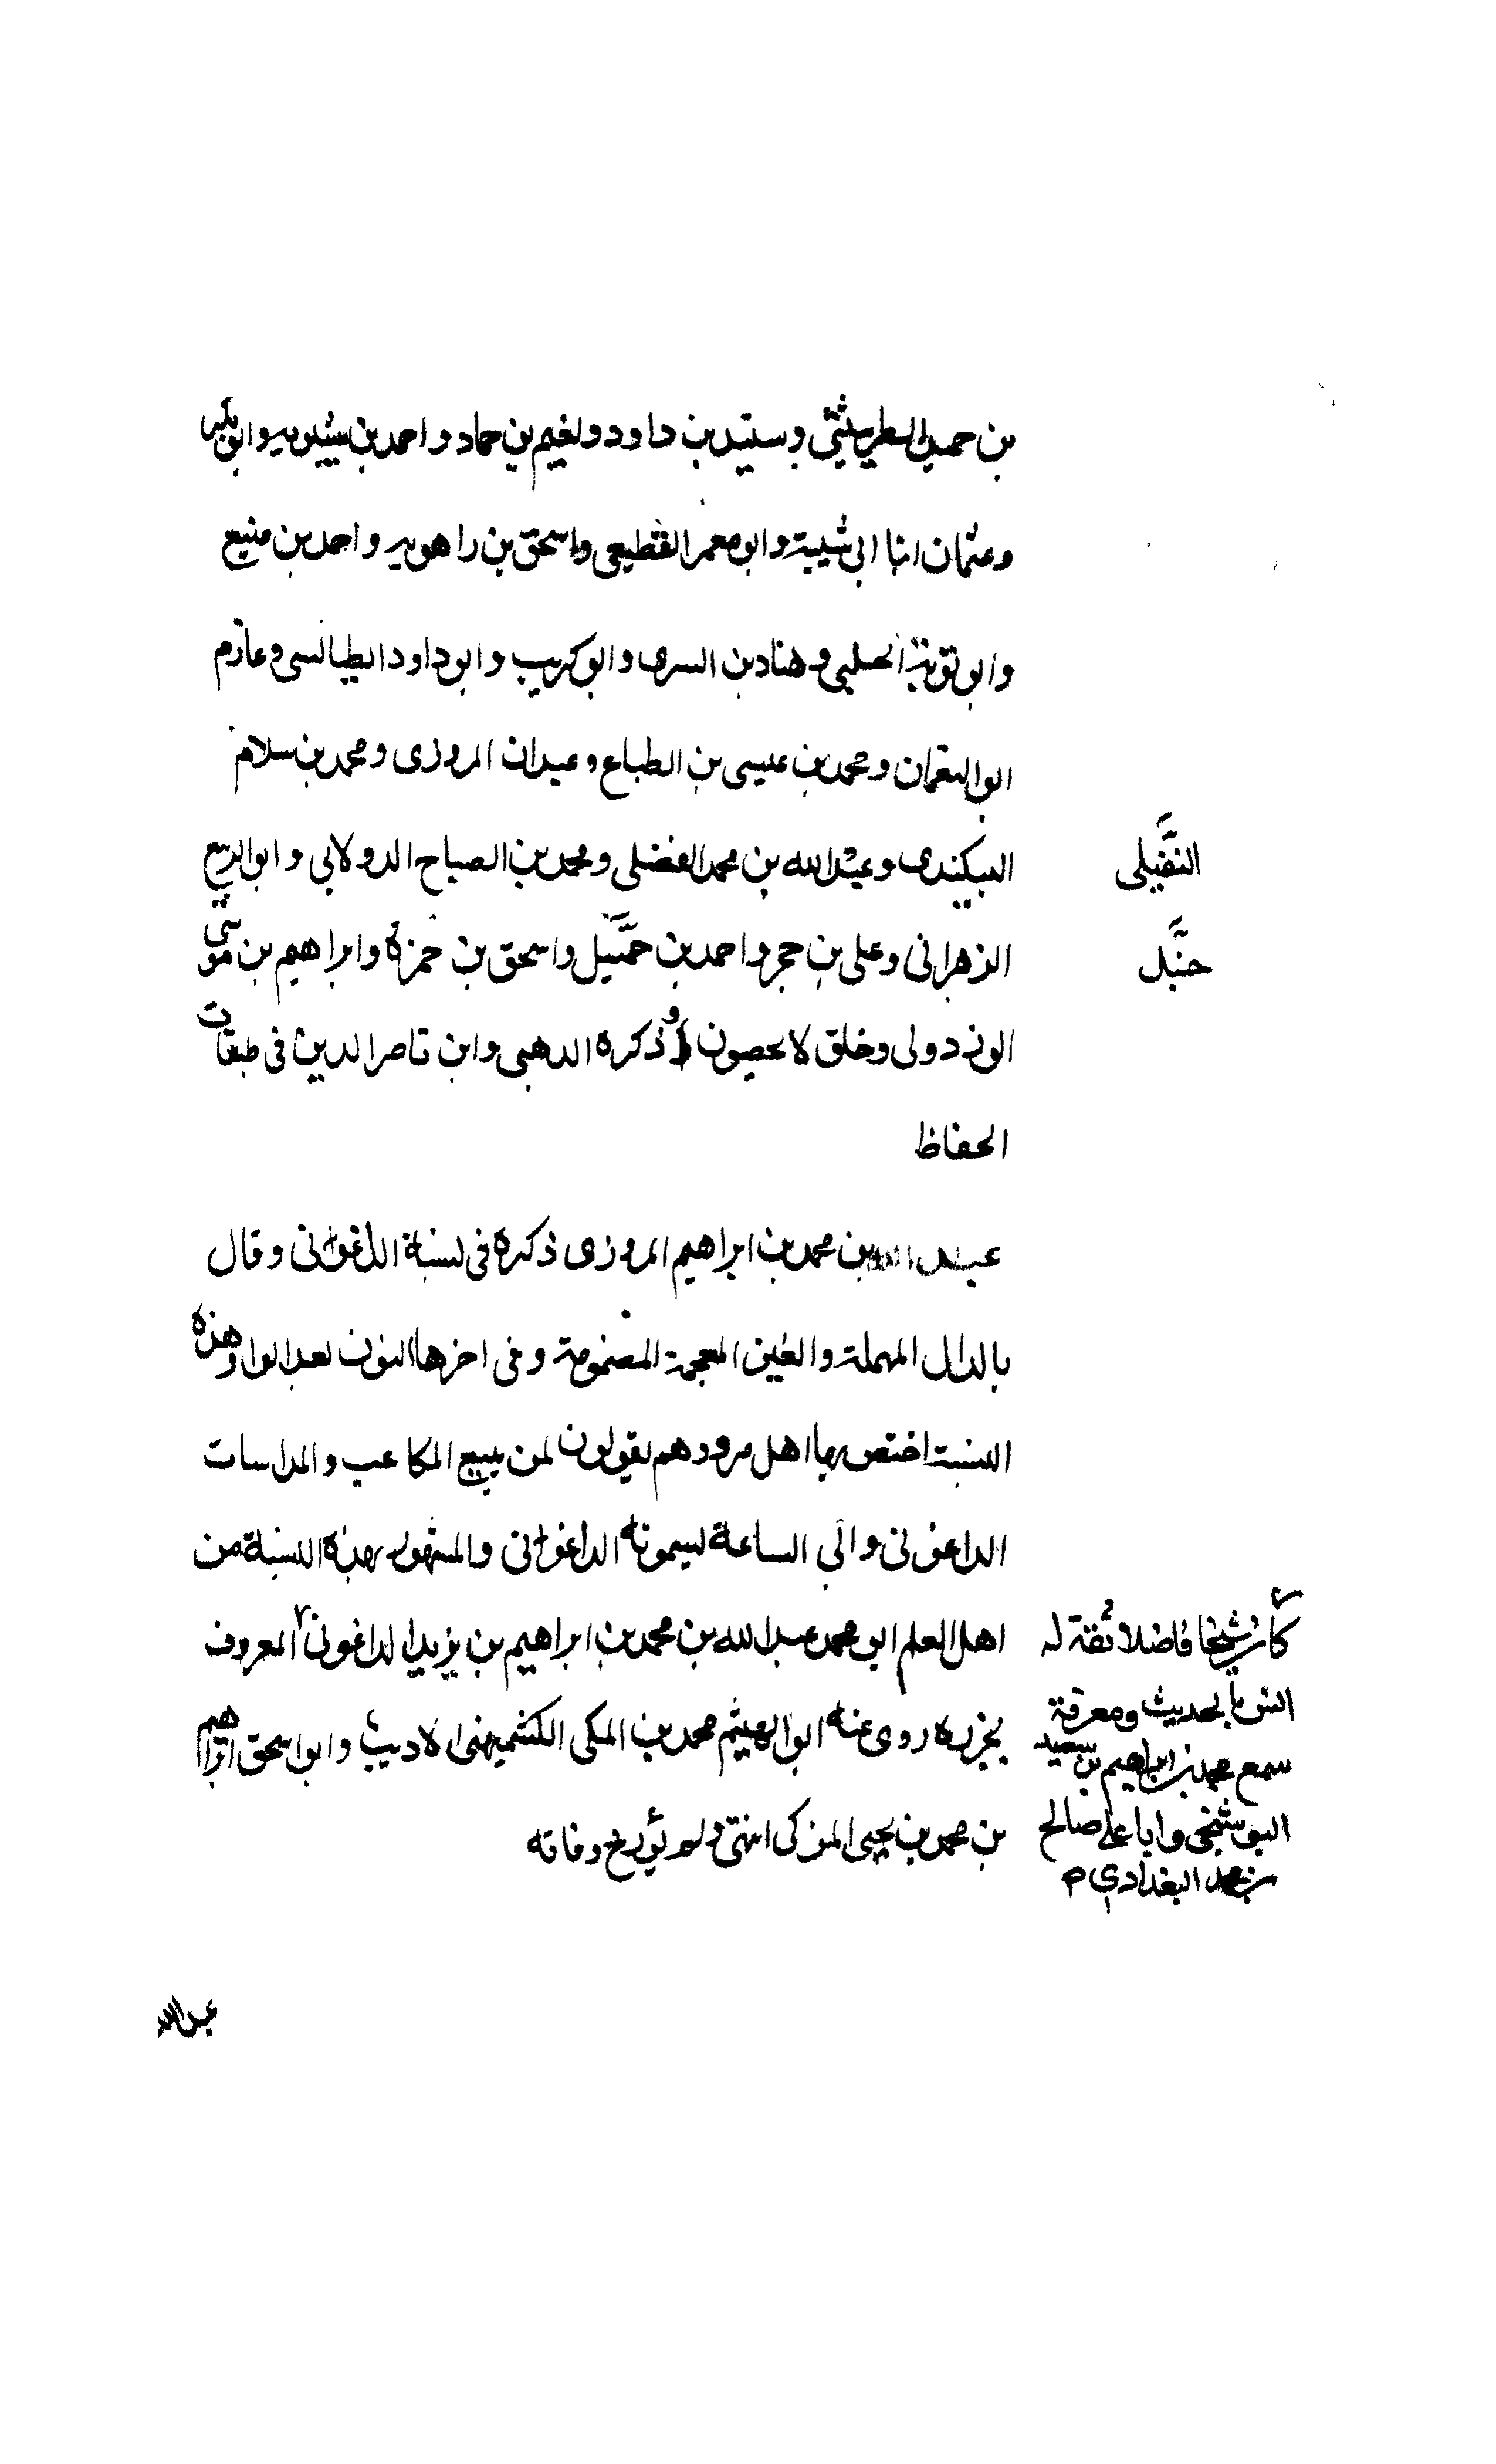 بن حميد الطريثيثي وسنيد بن داود ونعيم بن حماد واحمد بن شبويه وابو بكر
وعثمان ابنا ابى شيبة وابو معمر القطيعى واسحق بن راهويه واحمد بن منيع
وابو توبة الحلبي وهناد بن السرى وابو كريب وابو داود الطيالسى وعارم
ابو النعمان ومحمد بن عيسى بن الطباع وعبدان المروزى ومحمد بن سلام
البيكندى وعبد الله بن محمد الفضلى ومحمد بن الصباح الدولابي وابو الربيع
النفيلى
الزهرانى وعلى بن حجر واحمد بن حمنبل واسحق بن حمزة وابراهيم بن موسى
حنبل
الوزدولى وخلق لا يحصون وذكره الذهبى وابن ناصر الدين فى طبقات
الحفاظ
عبد الله بن محمد بن ابراهيم المروزى ذكره فى نسبة الداغوانى وقال
بالدال المهملة والغين المعجمة المضمومة وفى اخرها النون بعد الواو هذه
النسبة اختص بها اهل مرو وهم يقولون لمن يبيع المكاعب والمداسات
الداغونى والى الساعة يسمونه الداغوانى والمشهور بهذه النسبة من
اهل العلم ابو محمد عبد الله بن محمد بن ابراهيم بن يزيد الداغونى المعروف
بخزره روى عنه ابو الهيثم محمد بن المكى الكشميهنى الاديب وابو اسحق ابراهيم
بن محمد بن يحيى المزكى انتهى ولم يؤرخ وفاته
كان شيخا فاضلا ثقة له
انس بالحديث ومعرفة
سمع محمد بن ابراهيم بن سعيد
البوشنجى وابا على صالح
بن محمد البغدادي م
عبد الله